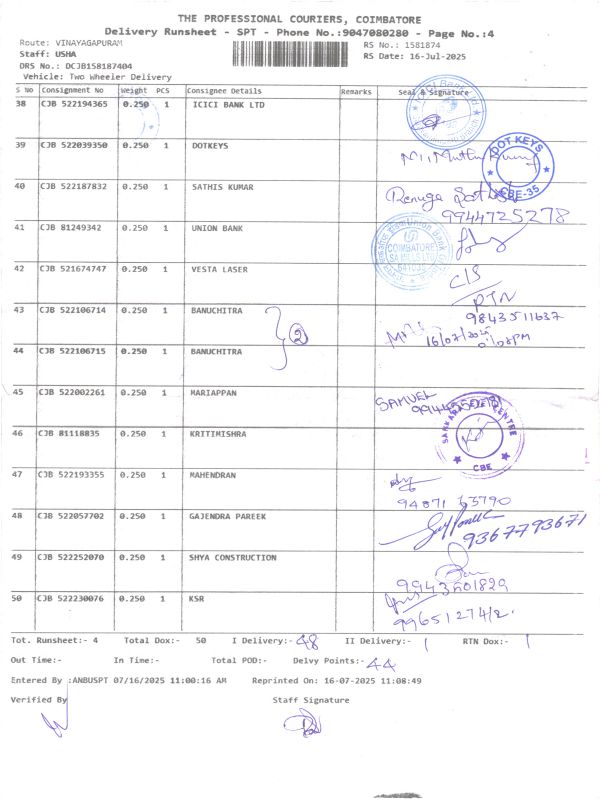 THE PROFESSIONAL COURIERS, COIMBATORE
Delivery Runsheet - SPT - Phone No.:9047080280 - Page No.:4
Route: VINAYAGAPURAM RS No.: 1581874
Staff: USHA RS Date: 16-Jul-2025
DRS No.: DCJB158187404
Vehicle: Two Wheeler Delivery
S No Consignment No Weight PCS Consignee Details Remarks Seal & Signature
38 CJB 522194365 0.250 1 ICICI BANK LTD
39 CJB 522039350 0.250 1 DOTKEYS
DOT KEYS
CBE-35
40 CJB 522187832 0.250 1 SATHIS KUMAR Renuga
9944725278
41 CJB 81249342 0.250 1 UNION BANK
COIMBATORE
641035
42 CJB 521674747 0.250 1 VESTA LASER C/S
RTN
43 CJB 522106714 0.250 1 BANUCHITRA 9843511637
2 16/07/2025
44 CJB 522106715 0.250 1 BANUCHITRA
45 CJB 522002261 0.250 1 MARIAPPAN SAMUEL
46 CJB 81118835 0.250 1 KRITIMISHRA
CENTRE
CBE
47 CJB 522193355 0.250 1 MAHENDRAN
94871 63790
48 CJB 522057702 0.250 1 GAJENDRA PAREEK
9367793671
49 CJB 522252070 0.250 1 SHYA CONSTRUCTION
50 CJB 522230076 0.250 1 KSR
Tot. Runsheet:- 4 Total Dox:- 50 I Delivery:- 48 II Delivery:- 1 RTN Dox:- 1
Out Time:- In Time:- Total POD:- Delvy Points:- 44
Entered By :ANBUSPT 07/16/2025 11:00:16 AM Reprinted On: 16-07-2025 11:08:49
Verified By Staff Signature